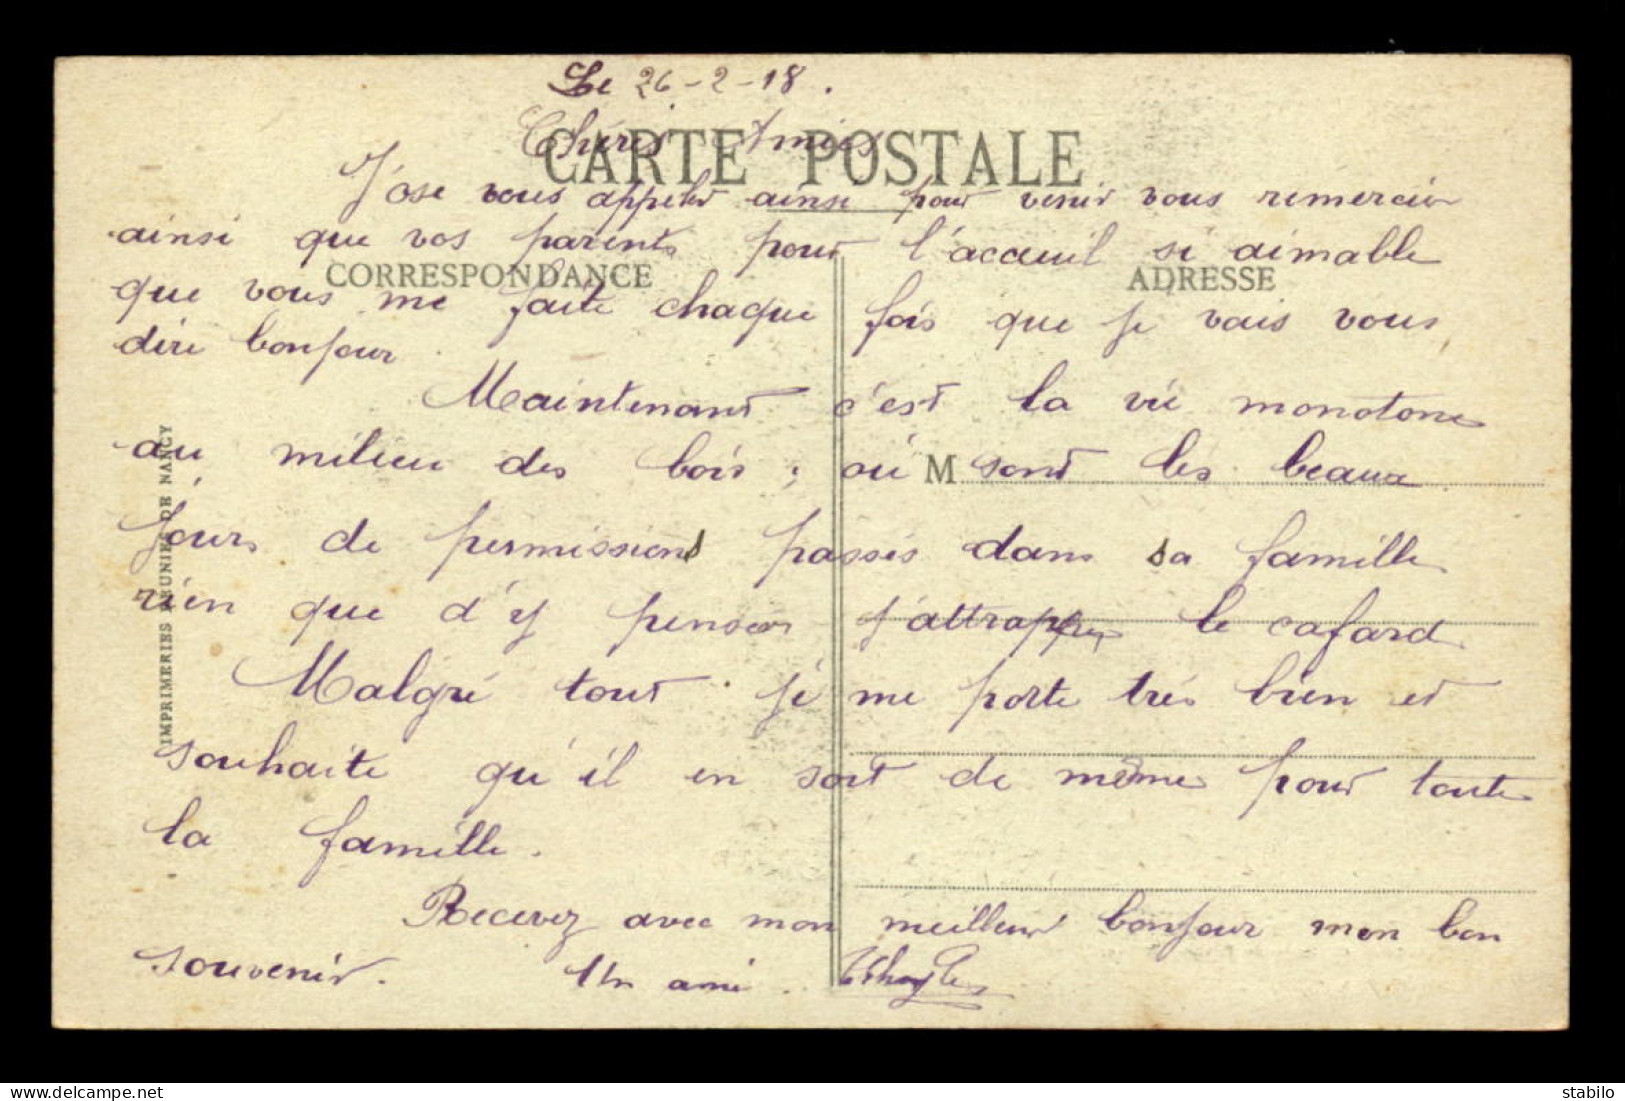 Le 26-2-18.
CARTE POSTALE
Chères Amies
J'ose vous appeler ainsi pour venir vous remercier
ainsi que vos parents pour l'acceuil si aimable
CORRESPONDANCE ADRESSE
que vous me faite chaque fois que je vais vous
dire bonjour.
Maintenant c'est la vie monotone
au milieu des bois ; où sont les beaux
M
jours de permissions passés dans sa famille
rien que d'y penser j'attrape le cafard
Malgré tout je me porte très bien et
souhaite qu'il en soit de même pour toute
la famille.
Recevez avec mon meilleur bonjour mon bon
souvenir. Un ami.
IMPRIMERIES REUNIES DE NANCY
delcampe.net
stabilo